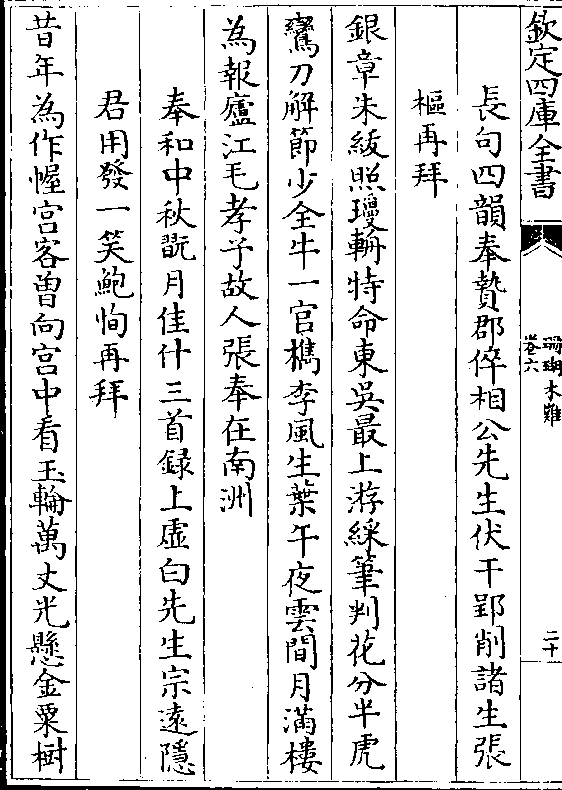 欽定四庫全書
珊瑚木難
卷六
二十
長句四韻奉贄郡倅相公先生伏干郢削諸生張
樞再拜
銀章朱紱照瓊輈特命東吳最上游綵筆判花分半虎
鸞刀解節少全牛一官檇李風生葉午夜雲間月滿樓
為報廬江毛孝子故人張奉在南洲
奉和中秋翫月佳什三首録上虛白先生宗遠隱
君用發一笑鮑恂再拜
昔年為作幄宫客曽向宫中看玉輪萬丈光懸金粟樹